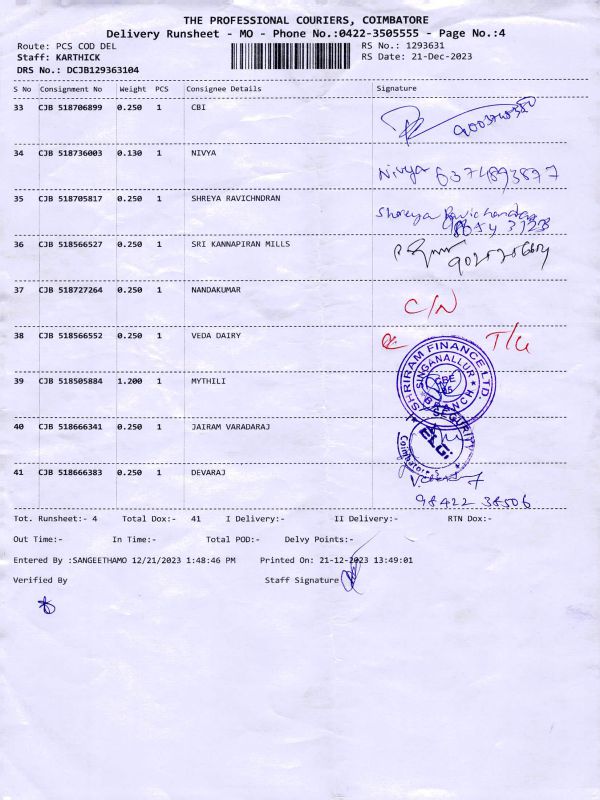 THE PROFESSIONAL COURIERS, COIMBATORE
Delivery Runsheet - MO - Phone No.:0422-3505555 - Page No.:4
Route: PCS COD DEL
RS No.: 1293631
Staff: KARTHICK
RS Date: 21-Dec-2023
DRS No.: DCJB129363104
S No Consignment No Weight PCS Consignee Details Signature
33 CJB 518706899 0.250 1 CBI
34 CJB 518736003 0.130 1 NIVYA
Nivya 6374893877
35 CJB 518705817 0.250 1 SHREYA RAVICHNDRAN
Shreya Ravichandran
36 CJB 518566527 0.250 1 SRI KANNAPIRAN MILLS
37 CJB 518727264 0.250 1 NANDAKUMAR
C/N
38 CJB 518566552 0.250 1 VEDA DAIRY
SHRIRAM FINANCE LTD.
SINGANALLUR
BRANCH
39 CJB 518505884 1.200 1 MYTHILI
40 CJB 518666341 0.250 1 JAIRAM VARADARAJ
SECURITY
ELGi
41 CJB 518666383 0.250 1 DEVARAJ
98422 38506
Tot. Runsheet:- 4 Total Dox:- 41 I Delivery:- II Delivery:- RTN Dox:-
Out Time:- In Time:- Total POD:- Delvy Points:-
Entered By :SANGEETHAMO 12/21/2023 1:48:46 PM Printed On: 21-12-2023 13:49:01
Verified By Staff Signature